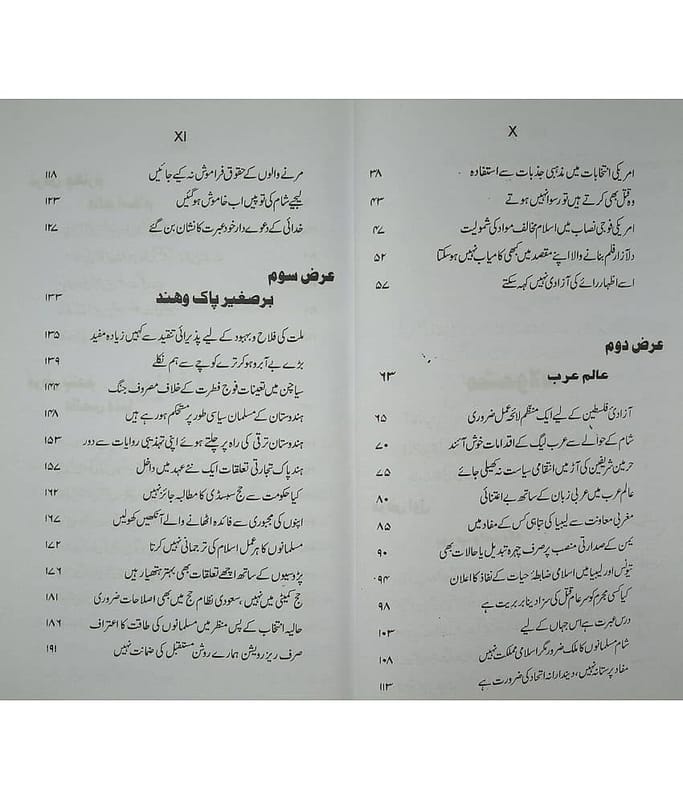 X
امریکی انتخابات میں مذہبی جذبات سے استفادہ ۳۸
وہ قتل بھی کرتے ہیں تو رسوا نہیں ہوتے ۴۳
امریکی فوجی نصاب میں اسلام مخالف مواد کی شمولیت ۴۷
دلآزار فلم بنانے والا اپنے مقصد میں کبھی کامیاب نہیں ہوسکتا ۵۲
اسے اظہار رائے کی آزادی نہیں کہہ سکتے ۵۷
عرض دوم
عالم عرب ۶۳
آزادیٔ فلسطین کے لیے ایک منظم لائحہ عمل ضروری ۶۵
شام کے حوالے سے عرب لیگ کے اقدامات خوش آئند ۷۰
حرمین شریفین کی آڑ میں انتقامی سیاست نہ کھیلی جائے ۷۵
عالم عرب میں عربی زبان کے ساتھ بے اعتنائی ۸۰
مغربی معاونت سے لیبیا کی تباہی کس کے مفاد میں ۸۵
یمن کے صدارتی منصب پر صرف چہرہ تبدیل یا حالات بھی ۹۰
تیونس اور لیبیا میں اسلامی ضابطۂ حیات کے نفاذ کا اعلان ۹۴
کیا کسی مجرم کو سرعام قتل کی سزا دینا بربریت ہے ۹۸
درس عبرت ہے اس جہاں کے لیے ۱۰۳
شام مسلمانوں کا ملک ضرور مگر اسلامی مملکت نہیں ۱۰۸
مفاد پرستانہ نہیں، دیندارانہ اتحاد کی ضرورت ہے ۱۱۳
XI
مرنے والوں کے حقوق فراموش نہ کیے جائیں ۱۱۸
لیجیے شام کی توپیں اب خاموش ہوگئیں ۱۲۳
خدائی کے دعوے دار خود عبرت کا نشان بن گئے ۱۲۷
عرض سوم
برصغیر پاک وہند ۱۳۳
ملت کی فلاح و بہبود کے لیے پذیرائی تنقید سے کہیں زیادہ مفید ۱۳۵
بڑے بے آبرو ہو کر ترے کوچے سے ہم نکلے ۱۳۹
سیاچن میں تعینات فوج فطرت کے خلاف مصروف جنگ ۱۴۴
ہندوستان کے مسلمان سیاسی طور پر مستحکم ہورہے ہیں ۱۴۸
ہندوستان ترقی کی راہ پر چلتے ہوئے اپنی تہذیبی روایات سے دور ۱۵۳
ہندپاک تجارتی تعلقات ایک نئے عہد میں داخل ۱۵۷
کیا حکومت سے حج سبسڈی کا مطالبہ جائز نہیں ۱۶۲
اپنوں کی مجبوری سے فائدہ اٹھانے والے آنکھیں کھولیں ۱۶۷
مسلمانوں کا ہر عمل اسلام کی ترجمانی نہیں کرتا ۱۷۲
پڑوسیوں کے ساتھ اچھے تعلقات بھی بہتر ہتھیار ہیں ۱۷۶
حج کمیٹی میں نہیں، سعودی نظام حج میں بھی اصلاحات ضروری ۱۸۱
حالیہ انتخاب کے پس منظر میں مسلمانوں کی طاقت کا اعتراف ۱۸۶
صرف ریزرویشن ہمارے روشن مستقبل کی ضمانت نہیں ۱۹۱